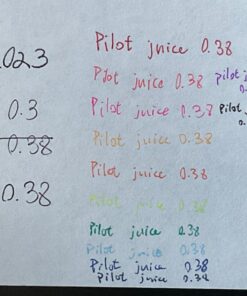 .023
0.3
0.38
0.38
Pilot juice 0.38
Pilot juice 0.38
Pilot juice 0.38
Pilot juice 0.38
Pilot juice 0.38
Pilot juice 0.38
Pilot juice 0.38
Pilot juice 0.38
Pilot juice 0.38
Pilot juice 0.38
pilot
Pilot